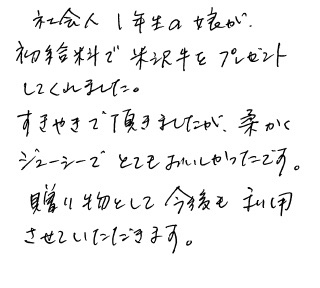 社会人1年生の娘が、
初給料で米沢牛をプレゼント
してくれました。
すきやきで頂きましたが、柔かく
ジューシーでとてもおいしかったです。
贈り物として今後も利用
させていただきます。